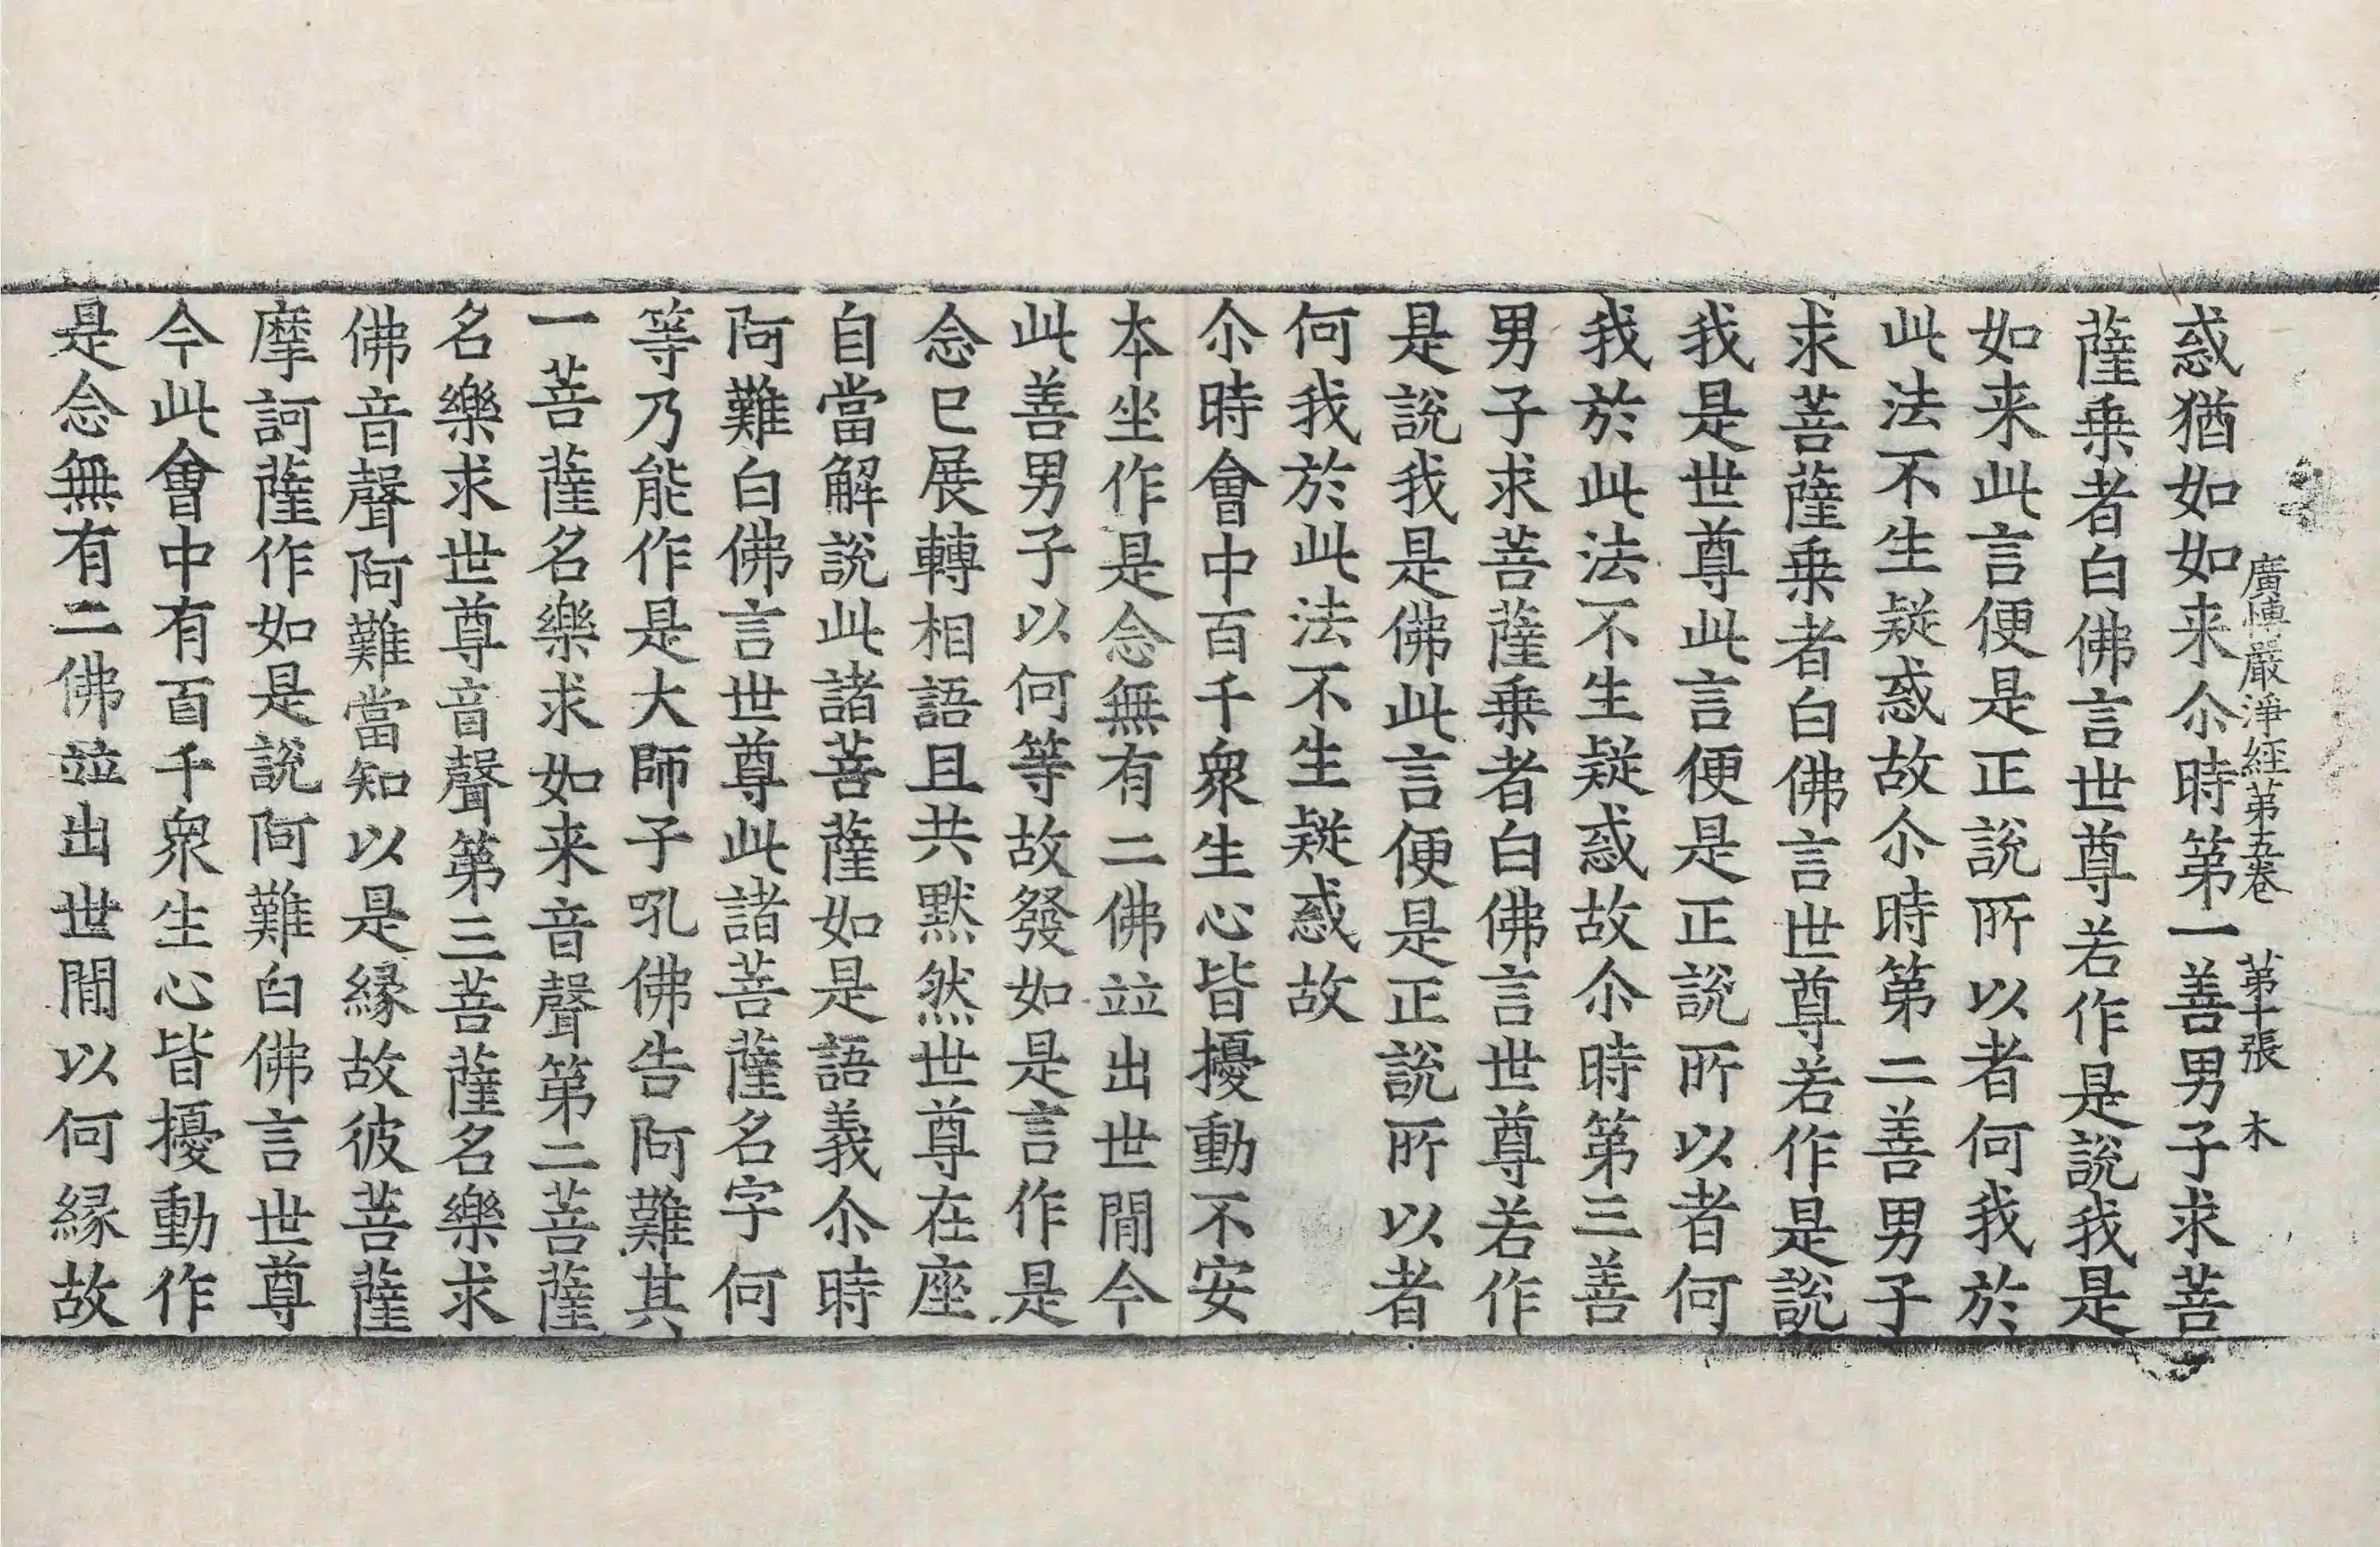 廣博嚴淨經第五卷　第十張　木
惑猶如如来尒時第一善男子求菩
薩乗者白佛言世尊若作是說我是
如来此言便是正說所以者何我於
此法不生疑惑故尒時第二善男子
求菩薩乗者白佛言世尊若作是說
我是世尊此言便是正說所以者何
我於此法不生疑惑故尒時第三善
男子求菩薩乗者白佛言世尊若作
是說我是佛此言便是正說所以者
何我於此法不生疑惑故
尒時會中百千衆生心皆擾動不安
本坐作是念無有二佛竝出世間今
此善男子以何等故發如是言作是
念已展轉相語且共默然世尊在座
自當解說此諸菩薩如是語義尒時
阿難白佛言世尊此諸菩薩名字何
等乃能作是大師子吼佛告阿難其
一菩薩名樂求如来音聲第二菩薩
名樂求世尊音聲第三菩薩名樂求
佛音聲阿難當知以是縁故彼菩薩
摩訶薩作如是說阿難白佛言世尊
今此會中有百千衆生心皆擾動作
是念無有二佛竝出世間以何縁故